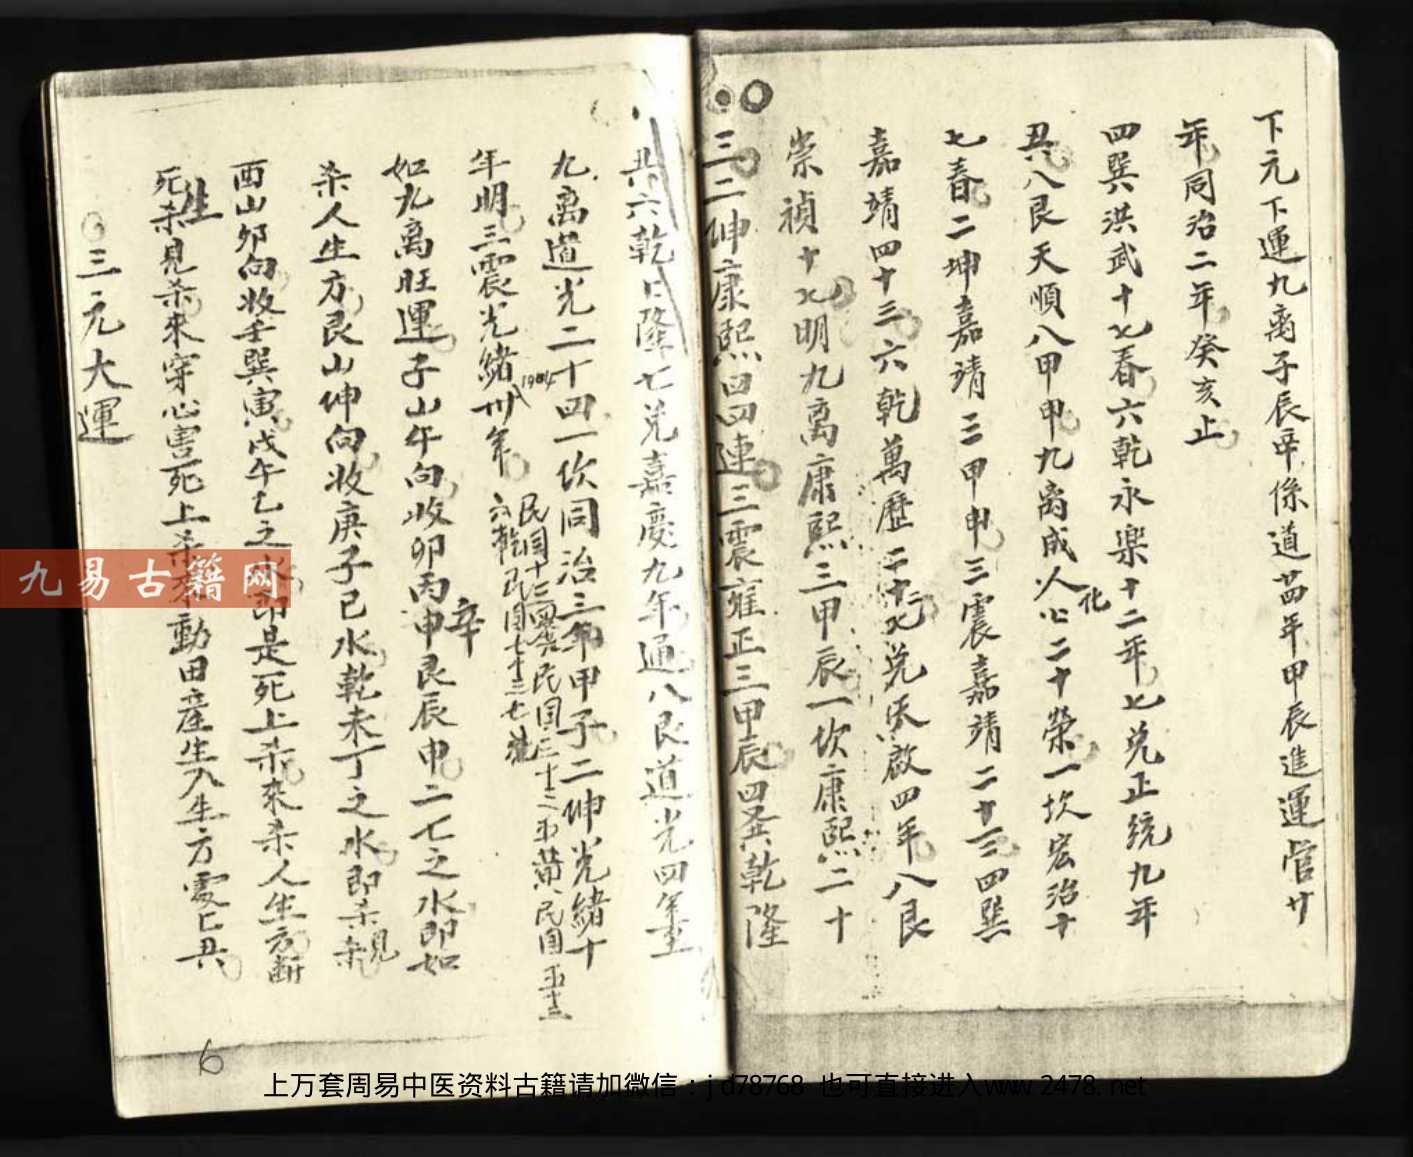 下元下運九离子辰申係道茁年甲辰進運管廿
年同治二年癸亥止
四巽洪武十七春六乾永樂十二年七兌正統九年
丑八艮天順八甲申九离成化二十榮一坎宏治十
七春二坤嘉靖三甲申三震嘉靖二十三四巽
嘉靖四十三六乾萬歷二十七兌天啟四年八艮
崇禎十七明九离康熙三甲辰一坎康熙二十
三二坤康熙四四連三震雍正三甲辰四巽乾隆
共六乾隆七兌嘉慶九年通八艮道光四年
九离道光二十四一坎同治三年甲子二坤光緒十
年明三震光緒卅年
1904
民国十三四巽民国三十三五黄民国五十三
六乾民国七十三七兌
如九离旺運子山午向收卯丙申艮辰申二七之水即如
辛
杀人生方艮山坤向收庚子巳水乾未丁之水即杀見
酉山卯向收壬巽寅戌午乙之水即是死上杀來杀人生方断
死杀見杀來穿心害死上杀不動田産生入生方
生
三元大運
6
九易古籍网
上万套周易中医资料古籍请加微信：jd78768 也可直接进入www.2478.net